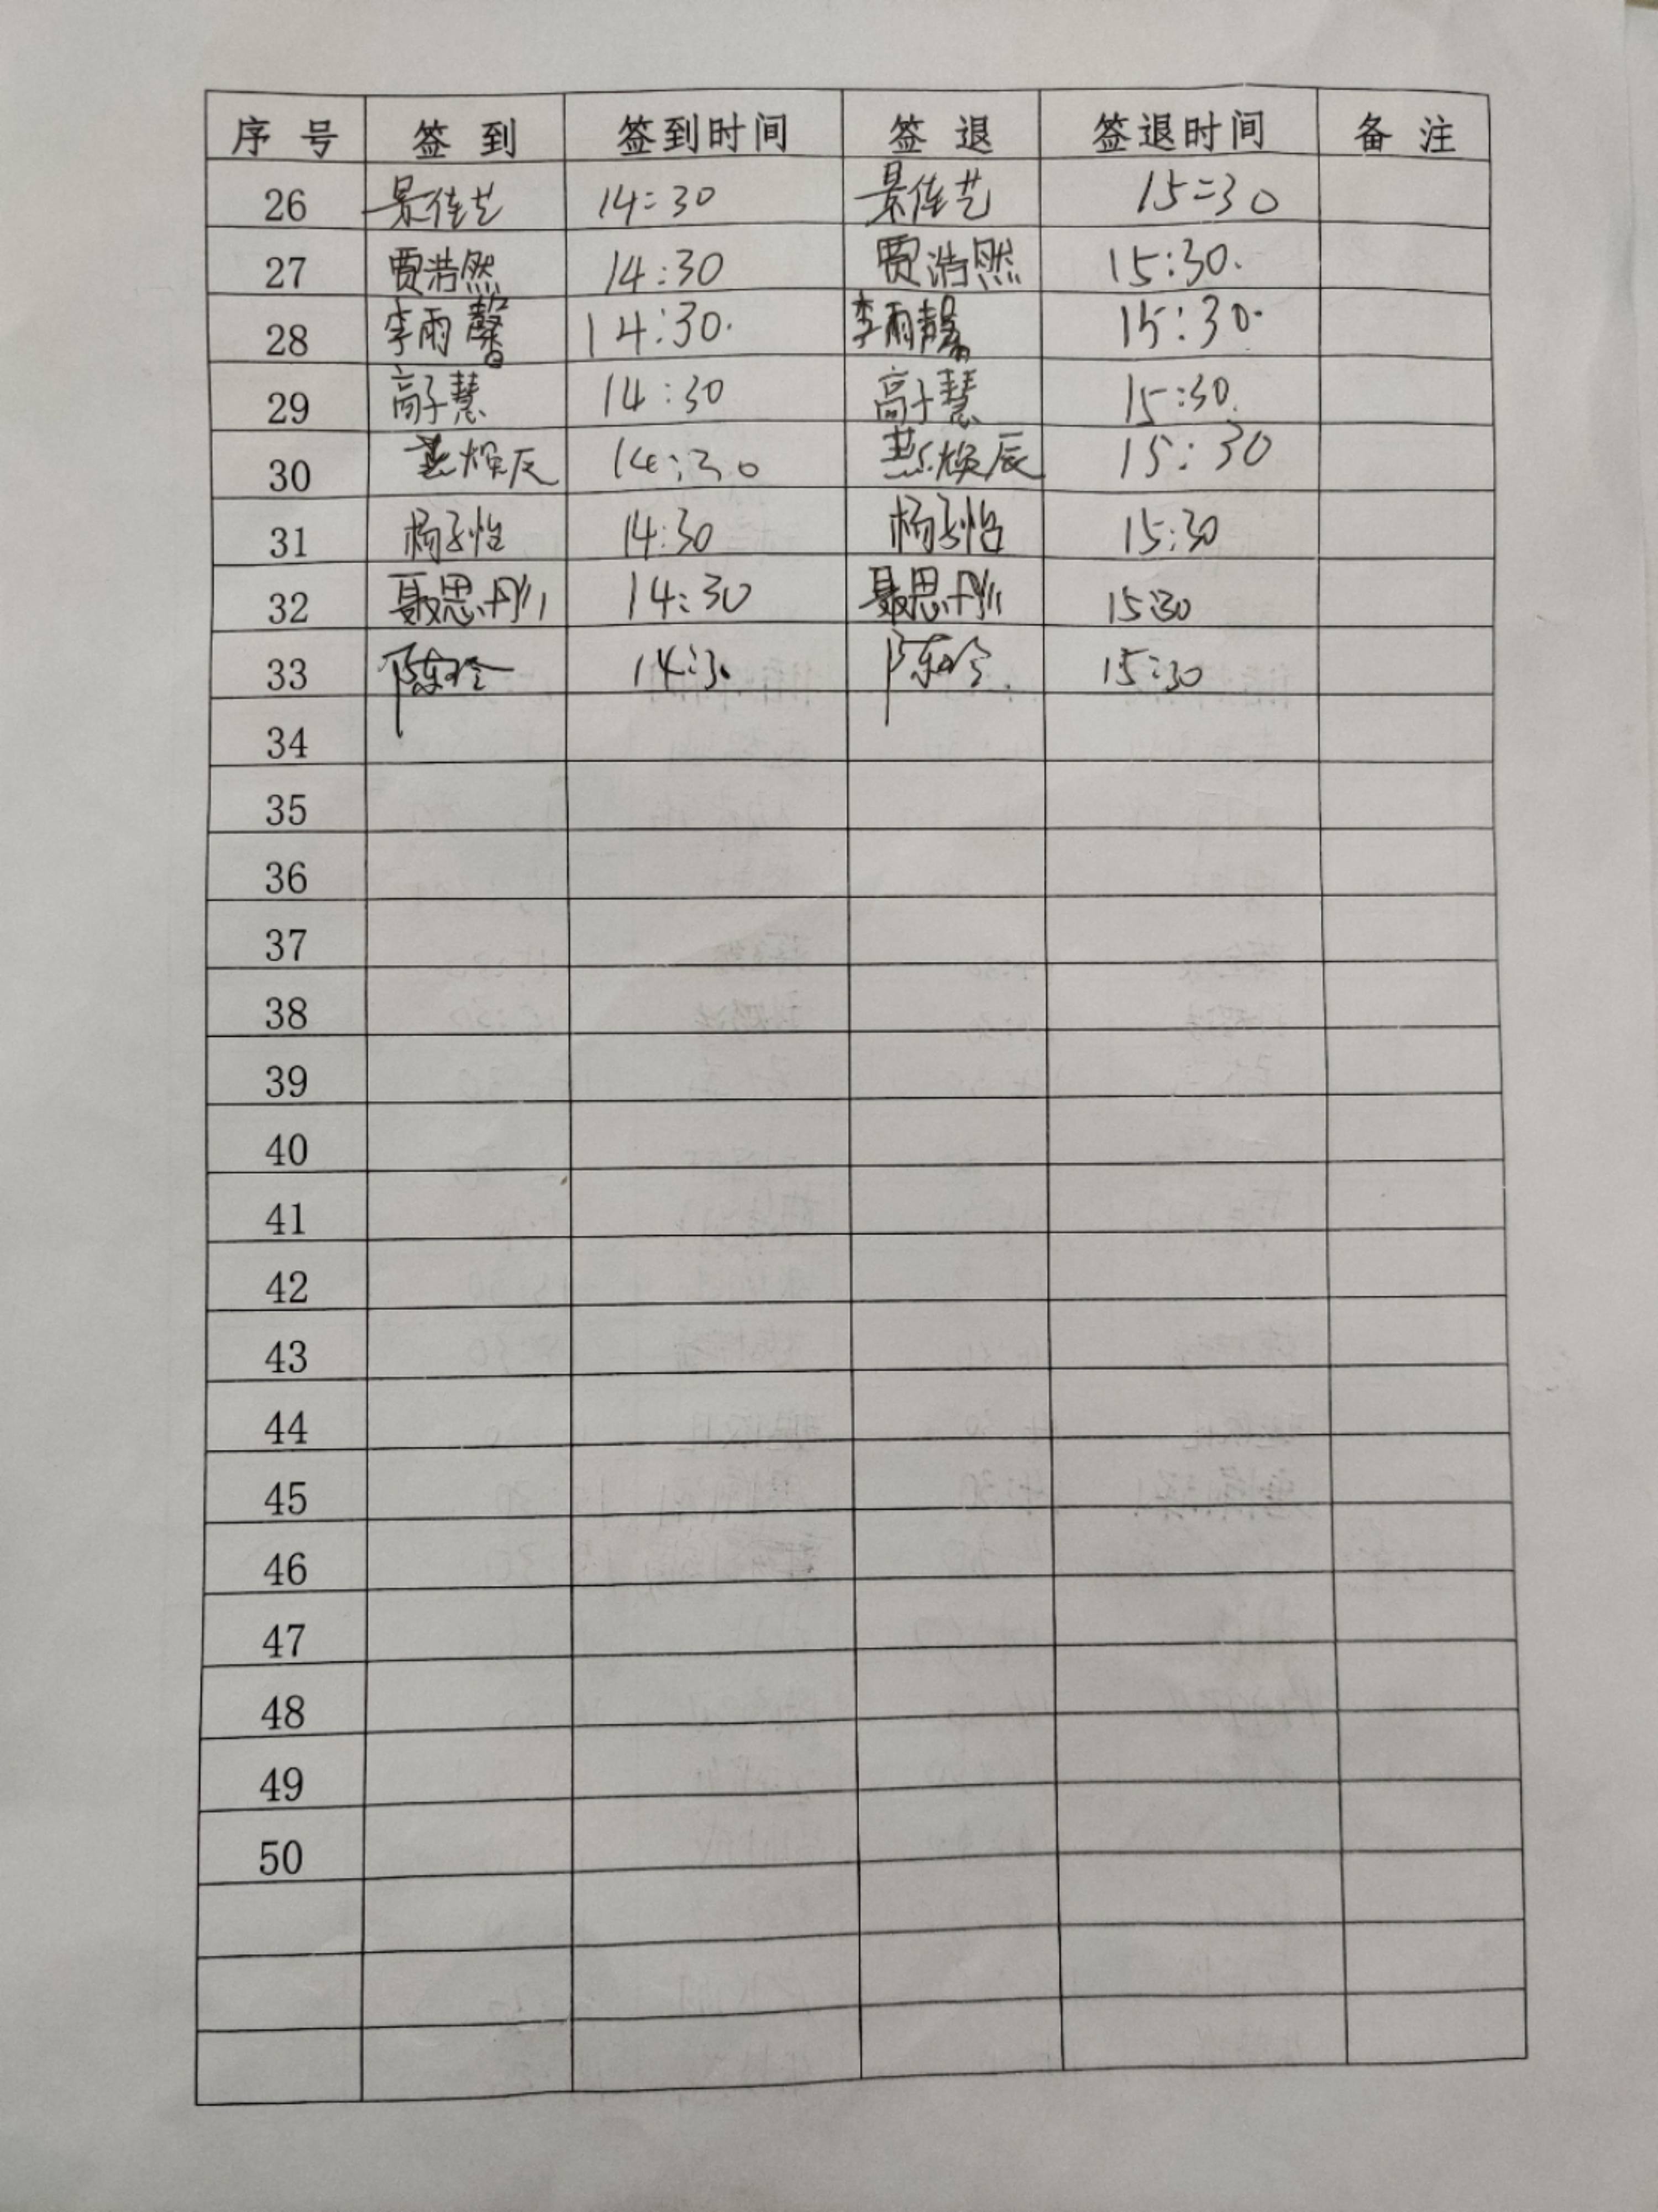 序号 签到 签到时间 签退 签退时间 备注
26 景佳艺 14:30 景佳艺 15:30
27 贾浩然 14:30 贾浩然 15:30.
28 李雨馨 14:30. 李雨馨 15:30.
29 高子慧 14:30 高子慧 15:30.
30 燕焕辰 14:30 燕焕辰 15:30
31 杨子怡 14:30 杨子怡 15:30
32 聂思彤 14:30 聂思彤 15:30
33 陈玲 14:30 陈玲 15:30
34
35
36
37
38
39
40
41
42
43
44
45
46
47
48
49
50